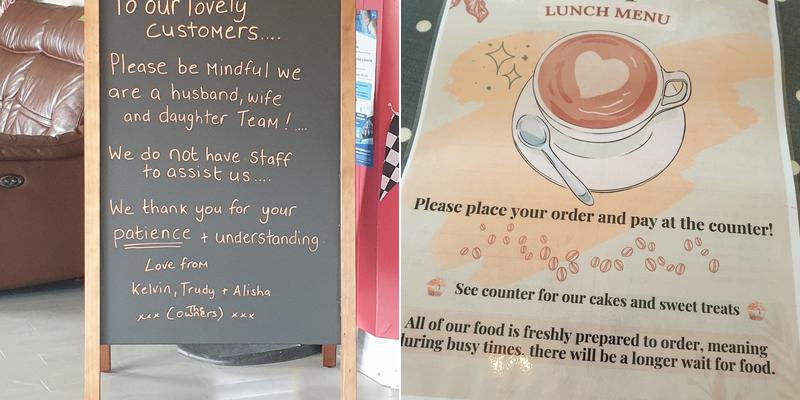 To our lovely
customers....
Please be mindful we
are a husband, wife
and daughter Team!....
We do not have staff
to assist us....
We thank you for your
patience + understanding
Love from
Kelvin, Trudy + Alisha
xxx (The owners) xxx
LUNCH MENU
Please place your order and pay at the counter!
See counter for our cakes and sweet treats
All of our food is freshly prepared to order, meaning
during busy times, there will be a longer wait for food.